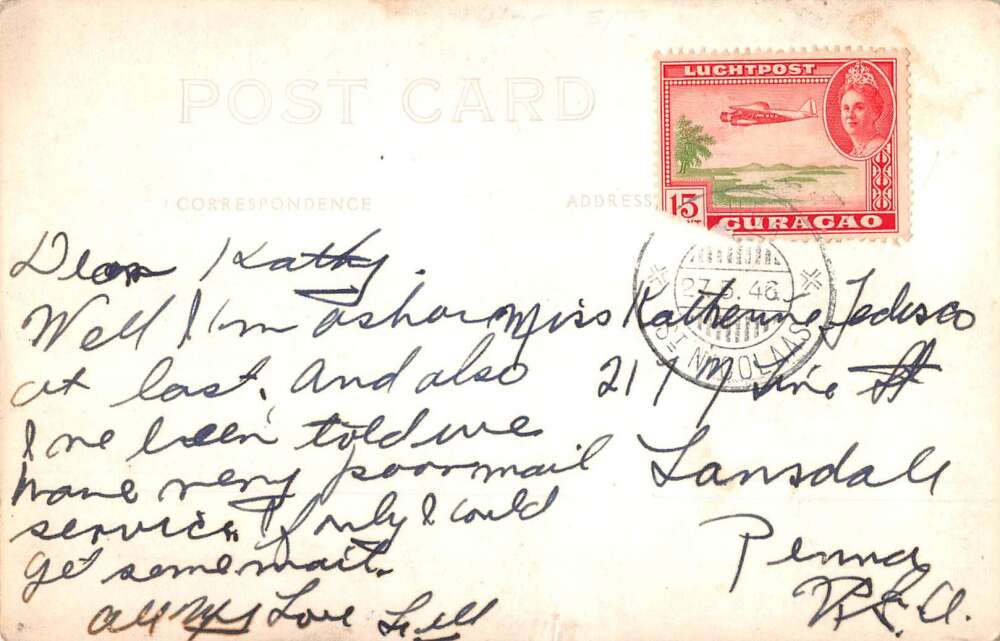 POST CARD
CORRESPONDENCE
ADDRESS
LUCHTPOST
15
CURAÇAO
27.3.46.
ST NICOLAAS
Dear Kathy.
Well I'm ashore
at last. And also
I've been told we
have very poor mail
service, If only I could
get some mail.
All My Love
Miss Katherine Tedesco
217 Line St
Lansdale
Penna
U.S.A.